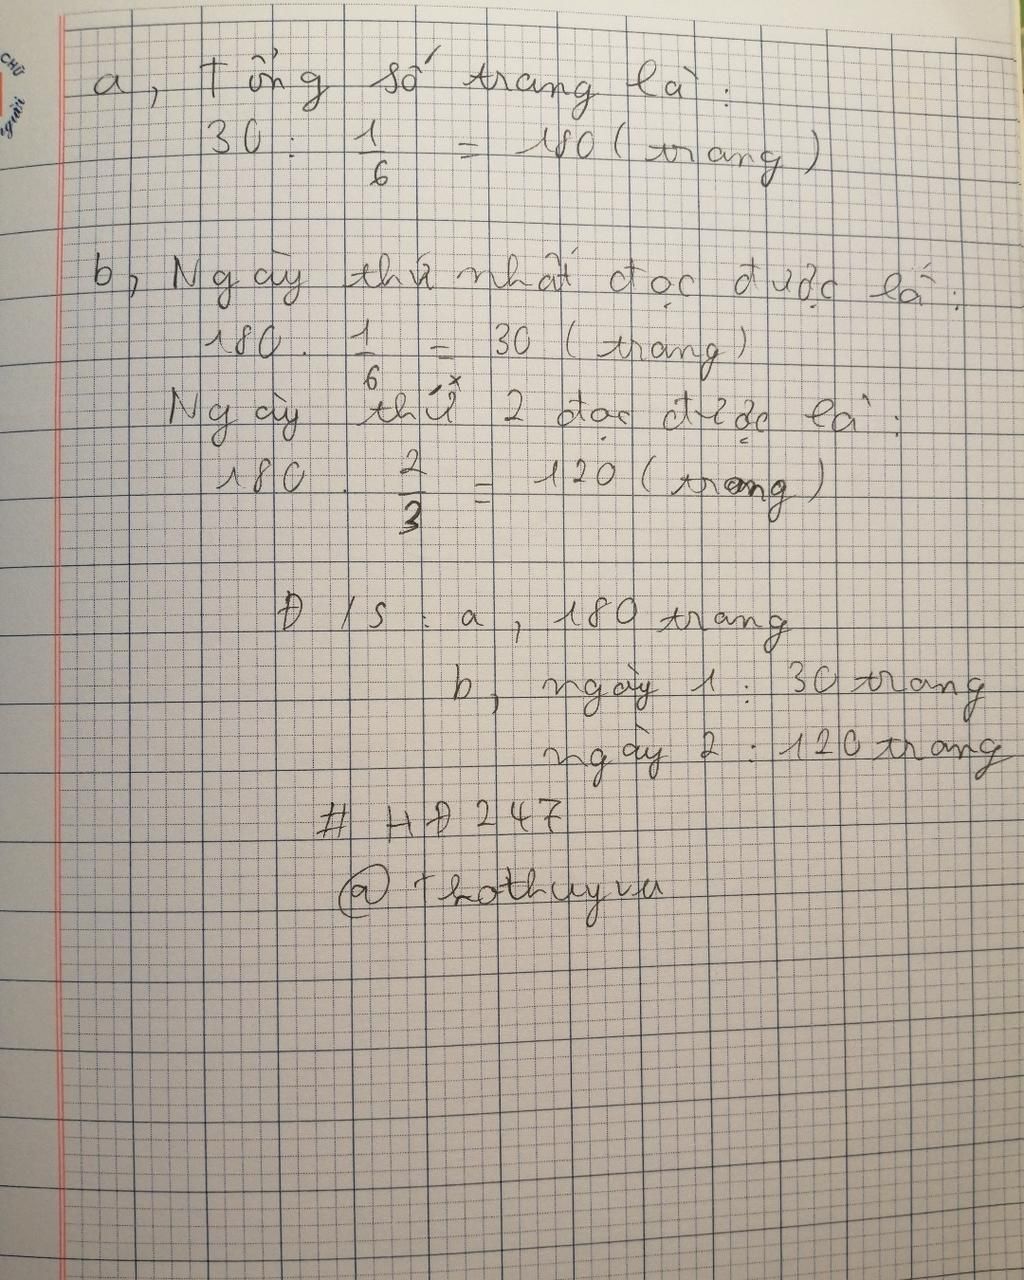 CHỮ
giải
a, Tổng số trang là:
30 : 1/6 = 180 (trang)
b, Ngày thứ nhất đọc được là:
180 . 1/6 = 30 (trang)
Ngày thứ 2 đọc được là:
180 . 2/3 = 120 (trang)
Đ/S : a, 180 trang
b, ngày 1 : 30 trang
ngày 2 : 120 trang
# HĐ247
@ thothuyvu